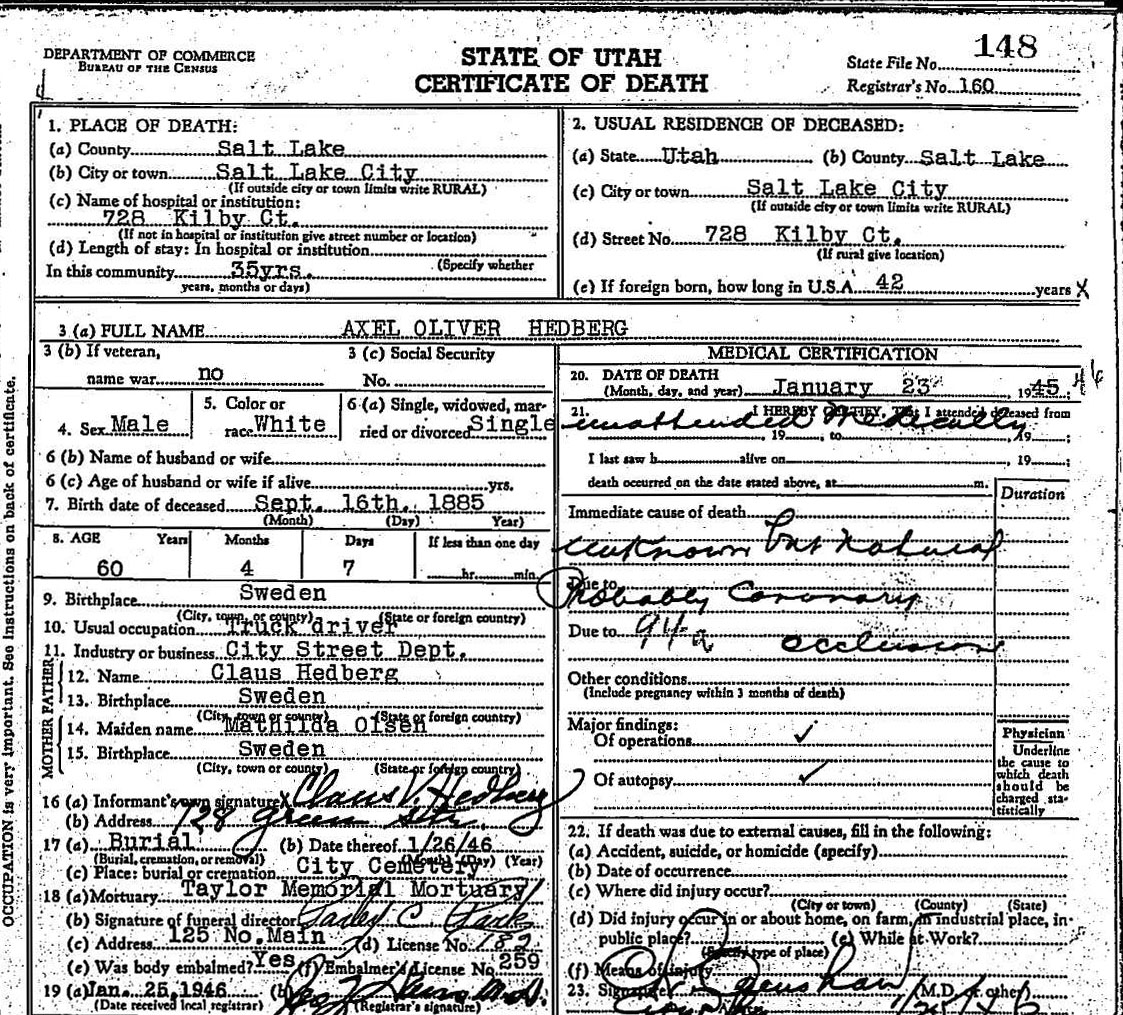 DEPARTMENT OF COMMERCE
BUREAU OF THE CENSUS
STATE OF UTAH
CERTIFICATE OF DEATH
State File No. 148
Registrar's No. 160
1. PLACE OF DEATH:
(a) County Salt Lake
(b) City or town Salt Lake City
(If outside city or town limits write RURAL)
(c) Name of hospital or institution:
728 Kilby Ct.
(If not in hospital or institution give street number or location)
(d) Length of stay: In hospital or institution
(Specify whether
In this community 35yrs.
years, months or days)
2. USUAL RESIDENCE OF DECEASED:
(a) State Utah (b) County Salt Lake
(c) City or town Salt Lake City
(If outside city or town limits write RURAL)
(d) Street No. 728 Kilby Ct.
(If rural give location)
(e) If foreign born, how long in U.S.A. 42 years X
3 (a) FULL NAME AXEL OLIVER HEDBERG
3 (b) If veteran,
name war no
3 (c) Social Security
No.
4. Sex Male
5. Color or
race White
6 (a) Single, widowed, mar-
ried or divorced Single
6 (b) Name of husband or wife
6 (c) Age of husband or wife if alive yrs.
7. Birth date of deceased Sept. 16th. 1885
(Month) (Day) Year)
8. AGE Years Months Days If less than one day
60 4 7 hr. min.
9. Birthplace Sweden
(City, town, or county) (State or foreign country)
10. Usual occupation Truck driver
11. Industry or business City Street Dept.
FATHER
12. Name Claus Hedberg
13. Birthplace Sweden
(City, town or county) (State or foreign country)
MOTHER
14. Maiden name Mathilda Olsen
15. Birthplace Sweden
(City, town or county) (State or foreign country)
16 (a) Informant's own signature X Claus V. Hedberg
(b) Address 728 Green Str.
17 (a) Burial (b) Date thereof 1/26/46
(Burial, cremation, or removal) (Month) (Day) (Year)
(c) Place: burial or cremation City Cemetery
18 (a) Mortuary Taylor Memorial Mortuary
(b) Signature of funeral director Parley C.
(c) Address 125 No. Main (d) License No. 182
(e) Was body embalmed? Yes (f) Embalmer's License No. 259
19 (a) Jan. 25, 1946 (b) M.D.
(Date received local registrar) (Registrar's signature)
MEDICAL CERTIFICATION
20. DATE OF DEATH
(Month, day, and year) January 23 1945 46
21. I HEREBY CERTIFY, That I attended deceased from
unattended medically
, 19 , to , 19 ;
I last saw h alive on , 19 ;
death occurred on the date stated above, at m.
Duration
Immediate cause of death
unknown but natural
Due to
Probably Coronary
Due to 94a occlusion
Other conditions
(Include pregnancy within 3 months of death)
Major findings:
Of operations ✓
Of autopsy ✓
Physician
Underline
the cause to
which death
should be
charged sta-
tistically
22. If death was due to external causes, fill in the following:
(a) Accident, suicide, or homicide (specify)
(b) Date of occurrence
(c) Where did injury occur?
(City or town) (County) (State)
(d) Did injury occur in or about home, on farm, in industrial place, in
public place? (e) While at Work?
(Specify type of place)
(f) Means of injury
23. Signature (M.D. or other)
OCCUPATION is very important. See instructions on back of certificate.